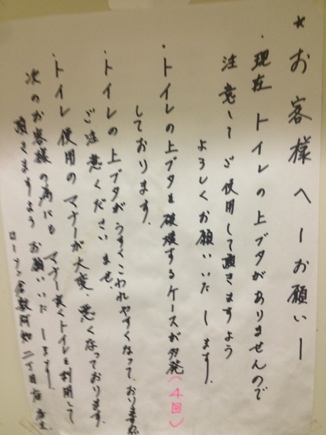 * お客様へーお願いー
・現在 トイレの上ブタがありませんので
注意してご使用して頂きますよう
よろしくお願いいたします.
・トイレの上ブタを破壊するケースが多発(4回)
しております.
・トイレの上ブタがうすくこわれやすくなっております為
ご注意くださいませ.
・トイレ使用のマナーが大変、悪くなっております.
次のお客様の為にも マナー良くトイレを利用して
頂きますよう お願いいたします.
ローソン倉敷阿知二丁目店